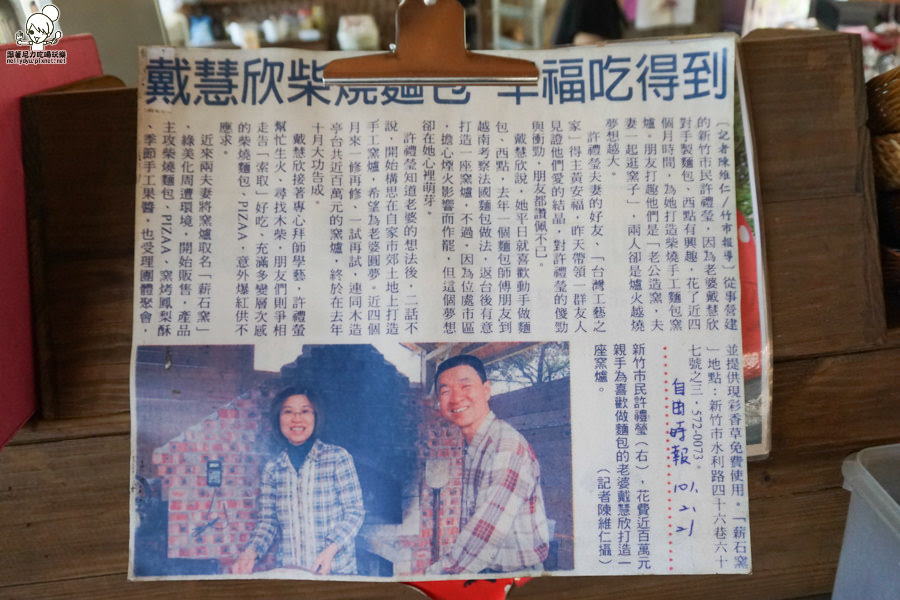 跟著尼力吃喝玩樂
nellydyu.pixnet.net
戴慧欣柴燒麵包 幸福吃得到
〔記者陳維仁/竹市報導〕從事營建
的新竹市民許禮瑩,因為老婆戴慧欣
對手製麵包、西點有興趣,花了近四
個月時間,為她打造柴燒手工麵包窯
爐。朋友打趣他們是「老公造窯,夫
妻一起逛窯子」,兩人卻是爐火越燒
夢想越大。
許禮瑩夫妻的好友、「台灣工藝之
家」得主黃安福,昨天帶領一群友人
見證他們愛的結晶,對許禮瑩的傻勁
與衝勁,朋友都讚佩不已。
戴慧欣說,她平日就喜歡動手做麵
包、西點,去年一個麵包師傅朋友到
越南考察法國麵包做法,返台後有意
打造一座窯爐,不過,因為位處市區
,擔心煙火影響而作罷,但這個夢想
卻在她心裡萌芽。
許禮瑩知道老婆的想法後,二話不
說,開始構思在自家市郊土地上打造
手工窯爐,希望為老婆圓夢。近四個
月來一修再修,一試再試,連同木造
亭台共近百萬元的窯爐,終於在去年
十月大功告成。
戴慧欣接著專心拜師學藝,許禮瑩
幫忙生火、尋找木柴,朋友們則爭相
走告「索取」好吃、充滿多變層次感
的柴燒麵包、PIZAA,意外爆紅供不
應求。
近來兩夫妻將窯爐取名「薪石窯」
,綠美化周遭環境,開始販售,產品
主攻柴燒麵包、PIZAA、窯烤鳳梨酥
、季節手工果醬,也受理團體聚會,
並提供現彩香草免費使用。「薪石窯
」地點:新竹市水利路四十六巷六十
七號之三,572-0073。
自由時報 101.2.21
新竹市民許禮瑩(右),花費近百萬元
親手為喜歡做麵包的老婆戴慧欣打造一
座窯爐。 (記者陳維仁攝)